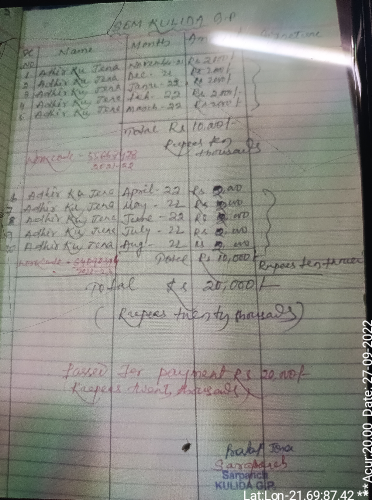 GEM KULIDA G.P
SL No Name Month Signature
1 Adhir Ku Jena Rs 2000/-
2 Adhir Ku Jena Dec - 21 Rs 2000/-
3 Adhir Ku Jena Janu - 22 Rs 2000/-
4 Adhir Ku Jena Feb - 22 Rs 2000/-
5 Adhir Ku Jena March - 22 Rs 2000/-
Total Rs 10,000/-
Rupees ten thousands
Adhir Ku Jena April - 22 Rs 2,000
Adhir Ku Jena May - 22 Rs 2,000
8 Adhir Ku Jena June - 22 Rs 2,000
9 Adhir Ku Jena July - 22 Rs 2,000
10 Adhir Ku Jena Aug - 22 Rs 2,000
Rs 10,000/- Rupees ten
Total Rs 20,000/-
(Rupees twenty thousands)
Passed for payment Rs 20,000/-
thousands)
Jena
Sarapanch
Sarpanch
KULIDA G.P.
Lat:Lon-21.69:87.42 **Acur:20.00 Date: 27-09-2022